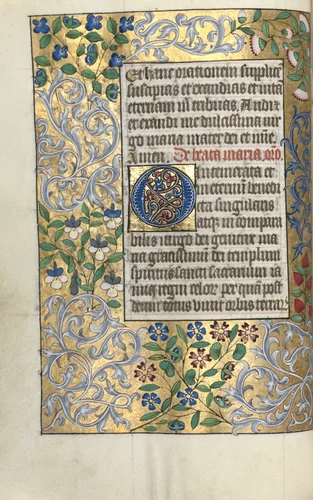 Et hanc orationem supplice
suscipias et exaudias et vitā
eternam in tribuas. Audi
et exaudi me dulcissima vir
go maria mater dei et mīe
Amen. De beata maria. orō.
O intemerata et
in eternū benedi
cta singularis
atqz in compara
bilis virgo dei genitrix ma
ria gratissimū dei templum
spiritus sancti sacrarium ia
nua regni celor per quā post
deum totus vivit orbis terrar